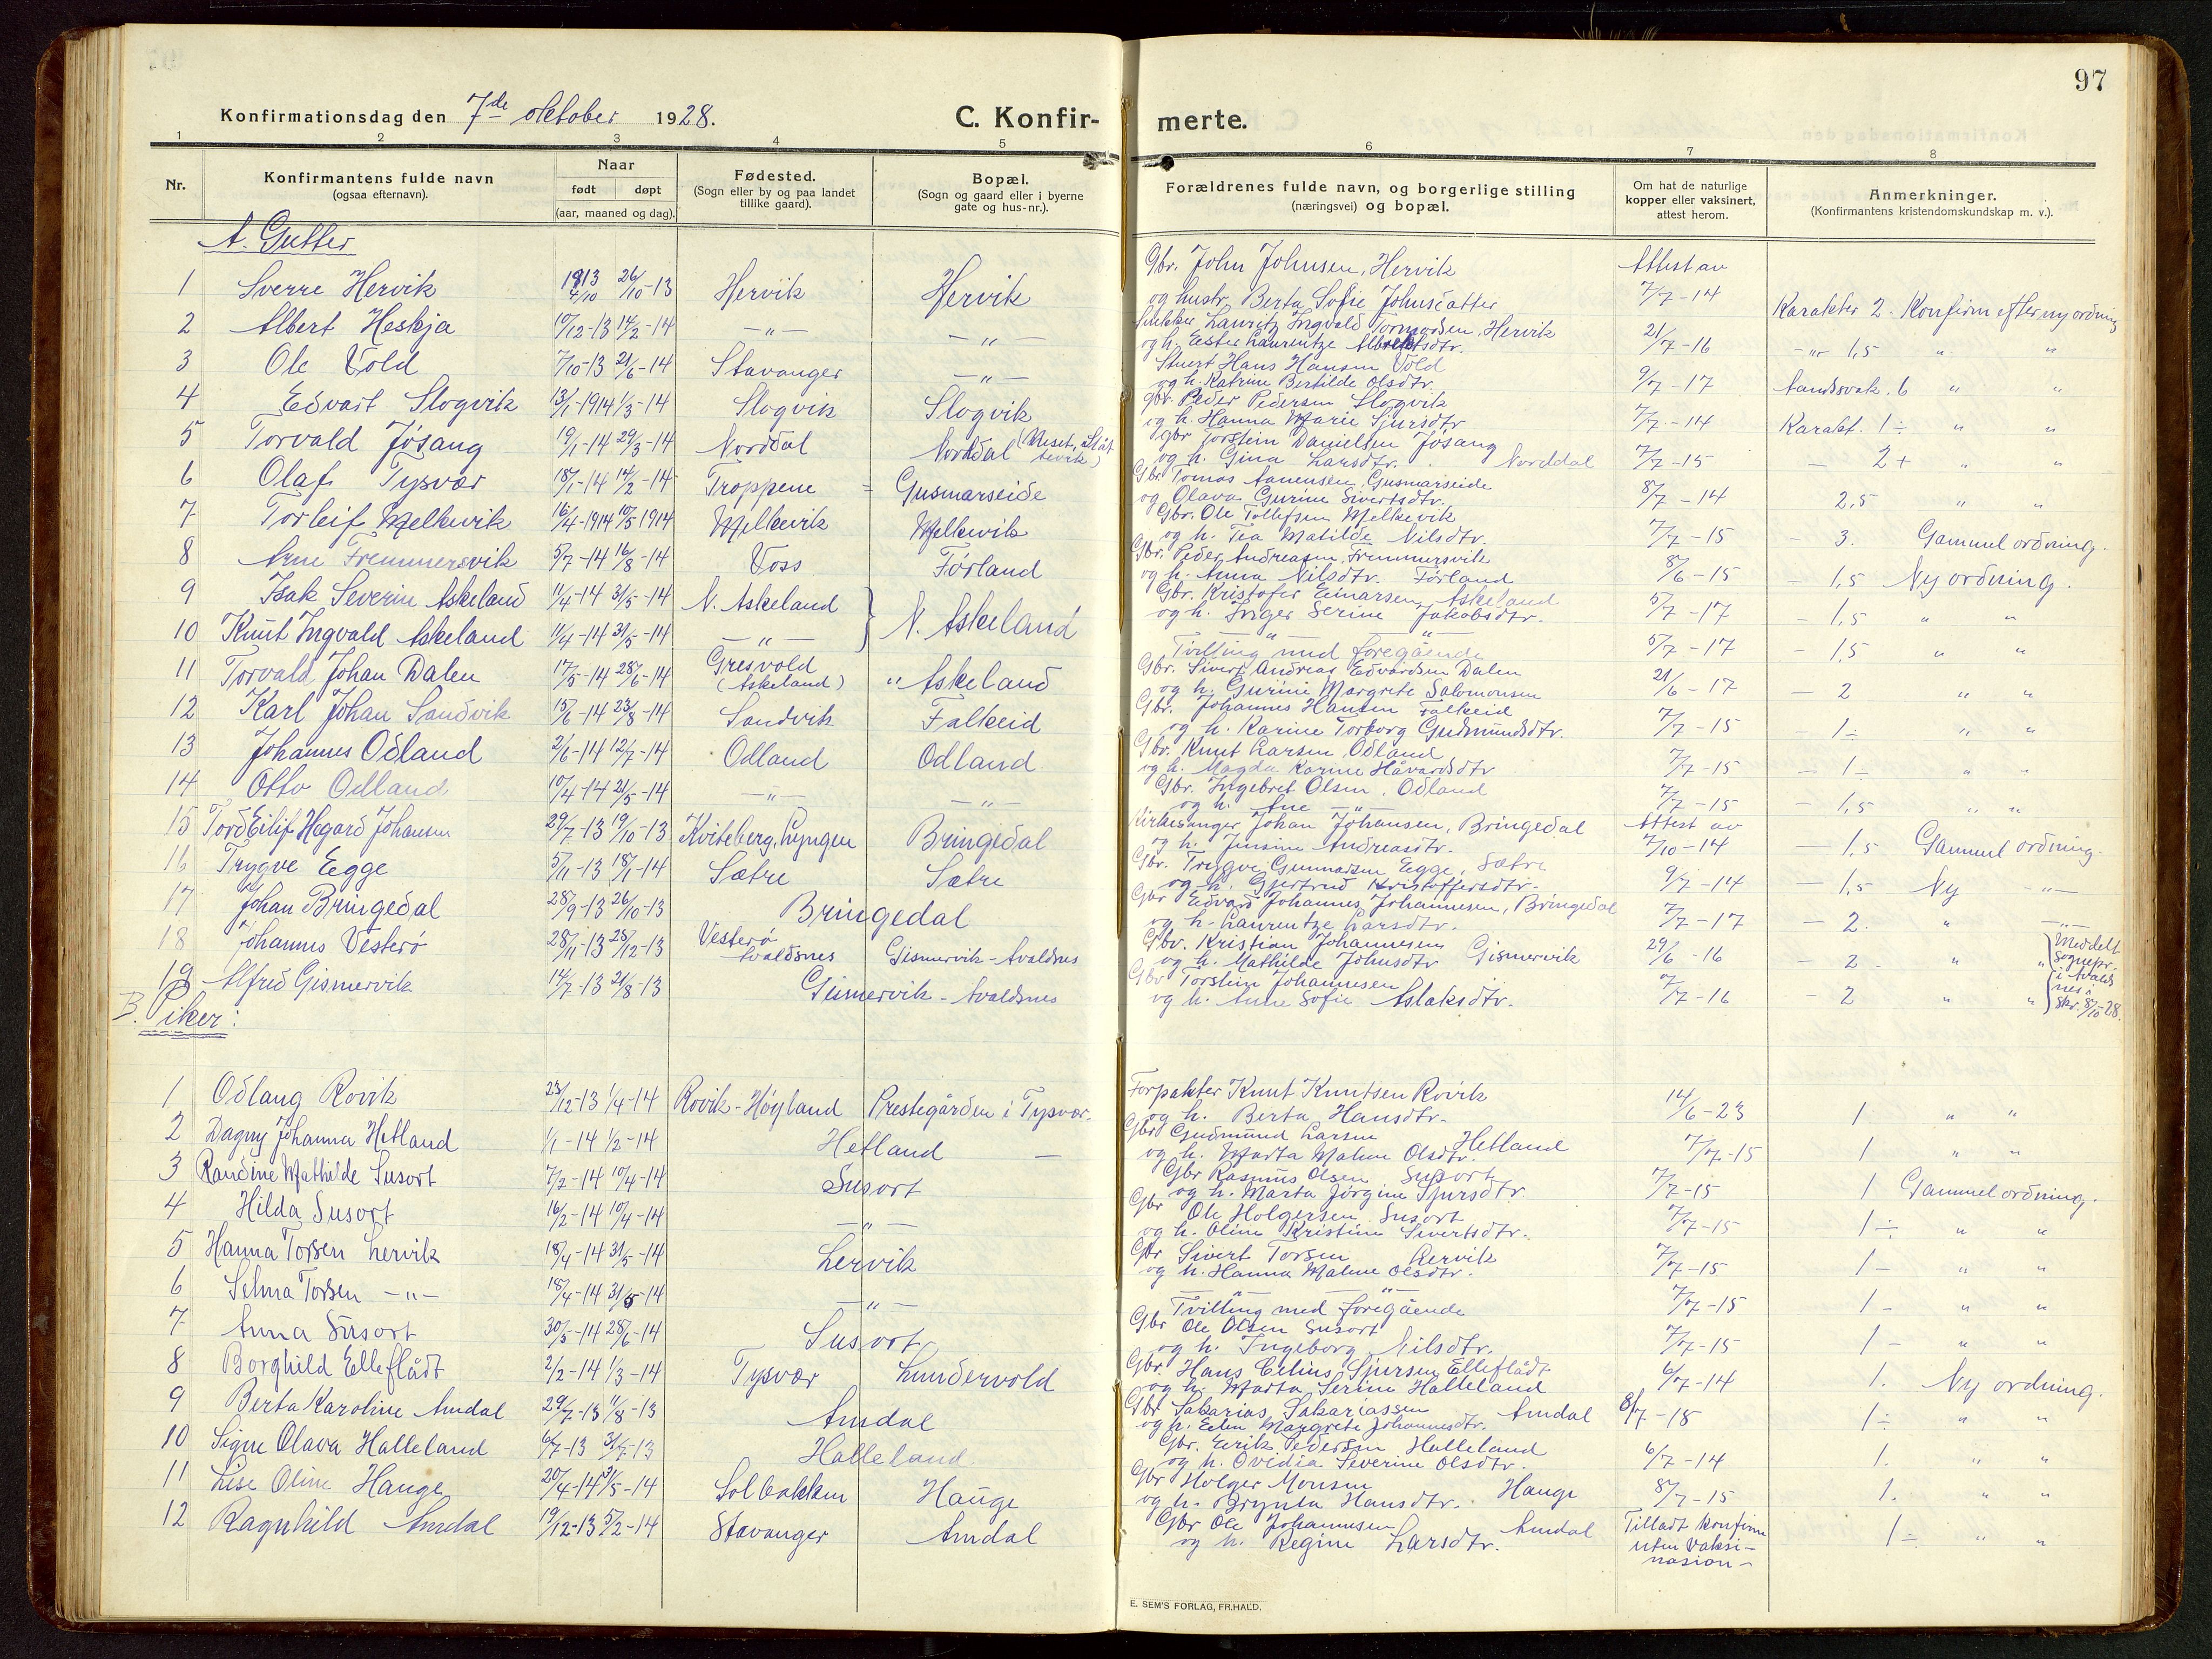 97
Konfirmationsdag den 7de oktober 1928.
C. Konfir-
merte.
1 2 3 4 5 6 7 8
Nr.
Konfirmantens fulde navn
(ogsaa efternavn).
Naar
født døpt
(aar, maaned og dag).
Fødested.
(Sogn eller by og paa landet
tillike gaard).
Bopæl.
(Sogn og gaard eller i byerne
gate og hus-nr.).
Forældrenes fulde navn, og borgerlige stilling
(næringsvei) og bopæl.
Om hat de naturlige
kopper eller vaksinert,
attest herom.
Anmerkninger.
(Konfirmantens kristendomskundskap m. v.).
A. Gutter
1 Sverre Hervik 1913 4/10 26/10-13 Hervik Hervik
Gbr. John Johnsen, Hervik
og hustr. Berta Sofie Johnsdatter
Attest av
7/7-14 Karakter 2. Konfirm efter ny ordning
2 Albert Heskja 10/12-13 14/2-14 -"- -"-
Lauritz Ingvald Tormodsen, Hervik
og h. Ester Laurentze Albretsdtr.
21/7-16 -"- 1,5 " "
3 Ole Vold 7/10-13 21/6-14 Stavanger -"-
Stuert Hans Hansen Vold
og h. Katrine Bertilde Olsdtr.
9/7-17 Aandssvak. 6 " "
4 Edvart Slogvik 13/1-1914 1/3-14 Slogvik Slogvik
gbr. Peder Pedersen Slogvik
og h. Hanna Marie Sjursdtr
7/7-14 Karakt. 1÷ " "
5 Torvald Jösang 19/1-14 29/3-14 Norddal Norddal
gbr Torstein Danielsen Jösang
og h. Gina Larsdtr. Norddal
7/7-15 - 2+ " "
6 Olaf Tysvær 18/1-14 14/2-14 Troppene = Gusmarseide
Gbr. Tomas Aanensen, Gusmarseide
og Olava Gurine Sivertsdtr.
8/7-14 2,5 " "
7 Torleif Melkevik 16/4-1914 10/5 1914 Melkevik Melkevik
Gbr. Ole Tollefsen Melkevik
og h. Tea Matilde Nilsdtr.
7/7-15 - 3. Gammel ordning.
8 Arne Fremmersvik 5/7-14 16/8-14 Voss Førland
Gbr. Peder Andreasen Fremmersvik
og h. Anna Nilsdtr. Førland
8/6-15 - 1,5 Ny ordning.
9 Isak Severin Askeland 11/4-14 31/5-14 N. Askeland
N. Askeland
Gbr. Kristofer Einarsen Askeland
og h. Inger Serine Jakobsdtr.
5/7-17 - 1,5 " "
10 Knut Ingvald Askeland 11/4-14 31/5-14 -"-
Tvilling med foregående
5/7-17 - 1,5 " "
11 Torvald Johan Dalen 17/5-14 28/6-14 Gresvold
(Askeland) " Askeland
Gbr. Sivert Andreas Edvardsen Dalen
og h. Gurine Margrete Salomonsen
21/6-17 - 2 " "
12 Karl Johan Sandvik 15/6-14 23/8-14 Sandvik Falkeid
Gbr. Johannes Hansen Falkeid
og h. Karine Torborg Gudmundsdtr.
7/7-15 - 1÷ " "
13 Johannes Odland 2/6-14 12/7-14 Odland Odland
Gbr. Knut Larsen, Odland
og h. Magda Karine Håvardsdtr
7/7-15 - 1- " "
14 Otto Odland 10/4-14 21/5-14 -"- -"-
Gbr. Ingebret Olsen, Odland
og h. Ane -"-
7/7-15 - 1,5 " "
15 Tord Eilif Hegard Johansen 29/7-13 19/10-13 Kviteberg, Lyngen Bringedal
Kirkesanger Johan Johansen, Bringedal
og h. Jensine Andreasdtr.
Attest av
7/10-14 - 1,5 Gammel ordning.
16 Trygve Egge 5/11-13 18/1-14 Sætre Sætre
Gbr. Trygve Gunnarsen Egge, Sætre
og h. Gjertrud Kristoffersdtr.
9/7-14 - 1,5 Ny -"-
17 Johan Bringedal 28/9-13 26/10-13 Bringedal
Gbr Edvard Johannes Johannesen, Bringedal
og h. Laurentze Larsdtr.
7/7-17 - 2. " -"-
18 Johannes Vesterø 28/11-13 28/12-13 Vesterø
Avaldsnes Gismervik-Avaldsnes
Gbr. Kristian Johannesen
og h. Mathilde Johnsdtr Gismervik
29/6-16 - 2 " "
19 Alfred Gismervik 14/7-13 24/8-13 Gismervik-Avaldsnes
Gbr Torstein Johannesen
og h. Anne Sofie Aslaksdtr.
7/7-16 - 2 " "
Meddelt
Sognepr.
i Avalds
nes i
skr. 8/10-28.
B. Piker:
1 Odlaug Rovik 23/12-13 1/4-14 Rovik-Høyland Prestegården i Tysvær.
Forpakter Knut Knutsen Rovik
og h. Berta Hansdtr.
14/6-23 1 " "
2 Dagny Johanna Hetland 1/1-14 1/2-14 Hetland -
Gbr Gudmund Larsen
og h. Marta Malene Olsdtr. Hetland
7/7-15 1 " "
3 Randine Mathilde Susort 7/2-14 10/4-14 Susort
Gbr Rasmus Olsen Susort
og h. Marta Jørgine Sjursdtr.
7/7-15 1 Gammel ordning.
4 Hilda Susort 16/2-14 10/4-14 -"-
Gbr Ole Holgersen Susort
og h. Oline Kristine Sivertsdtr.
7/7-15 1÷ " "
5 Hanna Torsen Lervik 18/4-14 31/5-14 Lervik
Gbr Sivert Torsen Lervik
og h. Hanna Malene Olsdtr.
7/7-15 1- " "
6 Selma Torsen -"- 18/4-14 31/5-14 -"-
Tvilling med foregående
7/7-15 1- " "
7 Anna Susort 30/5-14 28/6-14 Susort
Gbr Ole Olsen Susort
og h. Ingeborg Nilsdtr.
7/7-15 1- " "
8 Borghild Elleflådt 2/2-14 1/3-14 Tysvær Lundervold
Gbr. Hans Celius Sjursen Elleflådt
og h. Marta Serine Halleland
6/7-14 1. Ny ordning.
9 Berta Karoline Amdal 29/7-13 11/8-13 Amdal
Gbr Sakarias Sakariassen Amdal
og h. Elen Margrete Johannesdtr.
8/7-18 1÷ " "
10 Signe Olava Halleland 6/7-13 31/7-13 Halleland
Gbr. Eerik Pedersen Halleland
og h. Ovidia Severine Olsdtr.
6/7-14 1. " "
11 Lise Oline Hauge 20/4-14 31/5-14 Solbakken Hauge
Gbr Holger Monsen Hauge
og h. Brynla Hansdtr.
8/7-15 1. " "
12 Ragnhild Amdal 19/12-13 5/2-14 Stavanger Amdal
Gbr Ole Johannesen Amdal
og h. Regine Larsdtr.
Tilladt konfirm
uten vaksi-
nasion-
1÷ " "
E. SEM'S FORLAG, FR.HALD.